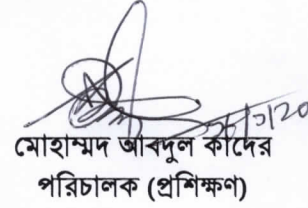 মোহাম্মদ আবদুল কাদের
পরিচালক (প্রশিক্ষণ)